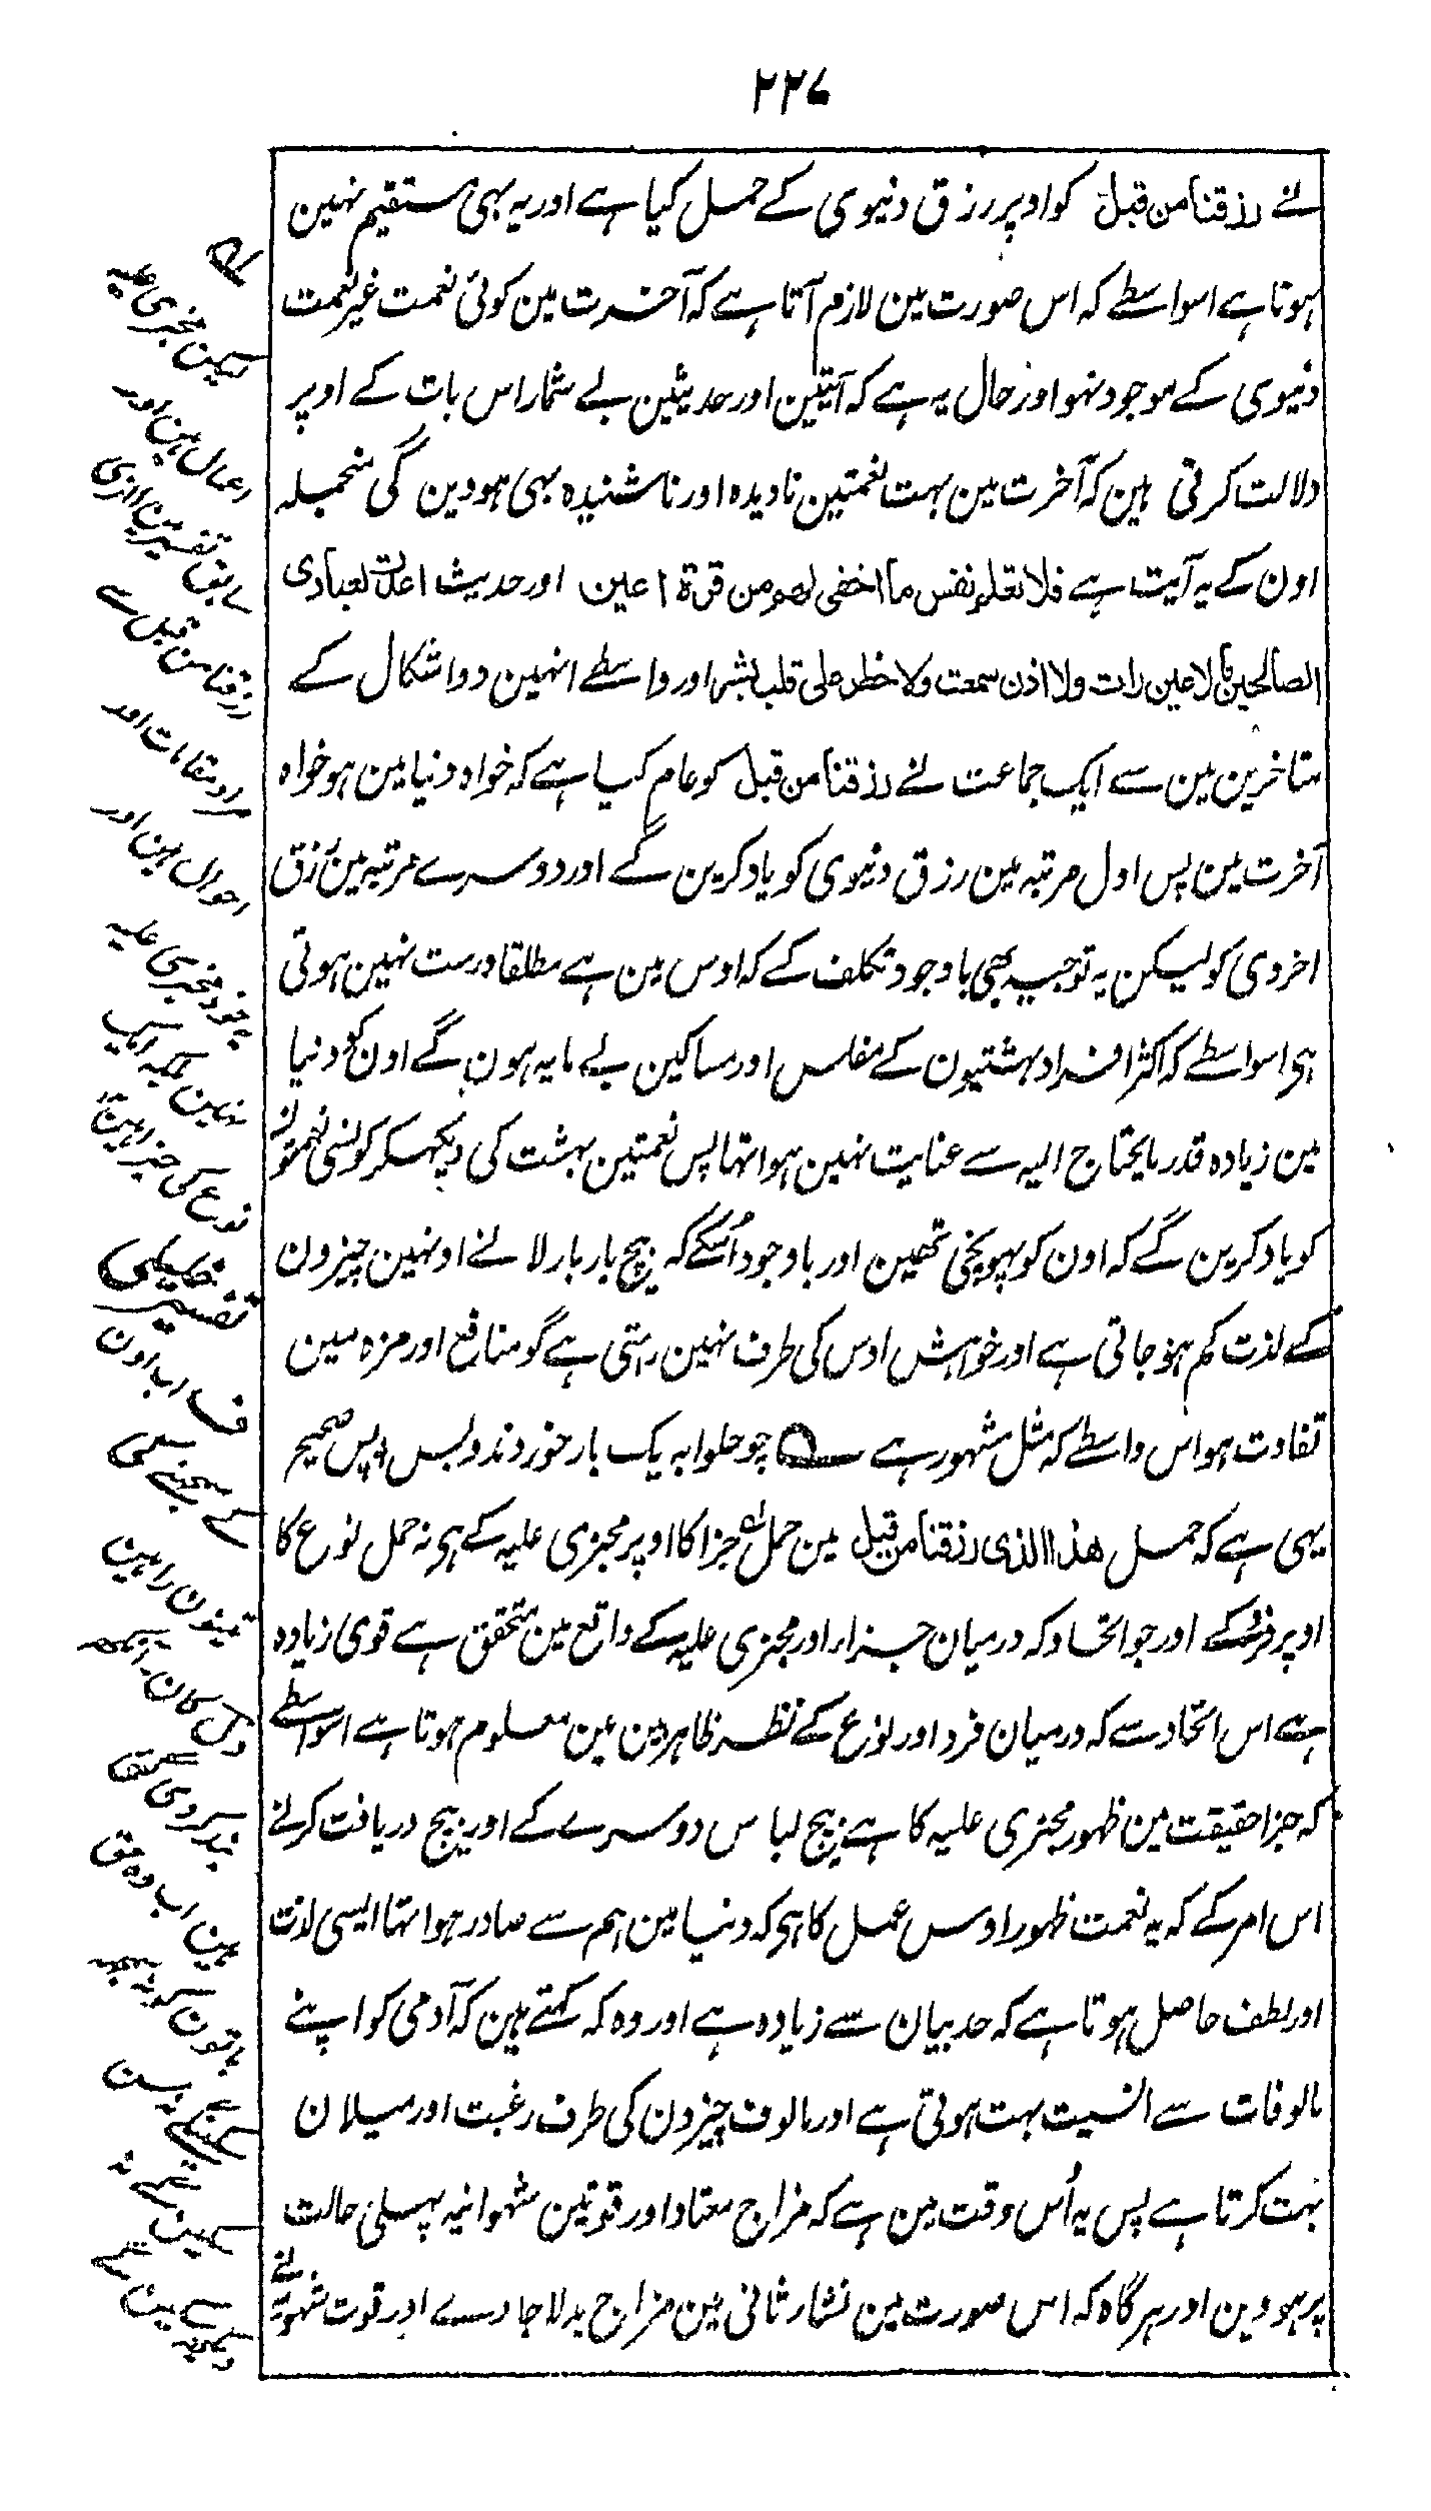 ۲۲۷
نے رزقنا من قبل کو اوپر رزق دنیوی کے حمل کیا ہے اور یہ بہی مستقیم نہین
ہوتا ہے اسواسطے کہ اس صورت مین لازم آتا ہے کہ آخرت مین کوئی نعمت غیر نعمت
دنیوی کے موجود نہو اور حال یہ ہے کہ آیتین اور حدیثین بے شمار اس بات کے اوپر
دلالت کرتی ہین کہ آخرت مین بہت نعمتین نادیدہ اور ناشنیدہ بہی ہووین گی منجملہ
اون کے یہ آیت ہے فلا تعلم نفس ما اخفی لهم من قرة اعین اور حدیث اعدت لعبادی
الصالحین ما لا عین رات ولا اذن سمعت ولا خطر علی قلب بشر اور واسطے انہین دو اشکال کے
متاخرین مین سے ایک جماعت نے رزقنا من قبل کو عام کیا ہے کہ خواہ دنیا مین ہو خواہ
آخرت مین پس اول مرتبہ مین رزق دنیوی کو یاد کرین گے اور دوسرے مرتبہ مین رزق
اخروی کو لیکن یہ توجیہ بھی باوجود تکلف کے کہ اوس مین ہے مطلقا درست نہین ہوتی
ہی اسواسطے کہ اکثر افراد بہشتیون کے مفلس اور مساکین بے مایہ ہون گے اون کو دنیا
مین زیادہ قدر مایحتاج الیہ سے عنایت نہین ہوا تہا پس نعمتین بہشت کی دیکہکر کونسی نعمتونکو
کو یاد کرین گے کہ اون کو پہونچی تھین اور باوجود اُسکے کہ بیچ بار بار لانے اونہین چیزون
کے لذت کم ہو جاتی ہے اور خواہش اوس کی طرف نہین رہتی ہے گو منافع اور مزہ مین
تفاوت ہو اس واسطے کہ مثل مشہور ہے چو حلوا بہ یک بار خوردند و بس پس صحیح
یہی ہے کہ حمل هذا الذی رزقنا من قبل مین حمل جزا کا اوپر مجزی علیہ کے ہی نہ حمل نوع کا
اوپر فرد کے اور جو اتحاد کہ درمیان جزا اور مجزی علیہ کے واقع مین متحقق ہے قوی زیادہ
ہے اس اتحاد سے کہ درمیان فرد اور نوع کے نظر ظاہربین مین معلوم ہوتا ہے اسواسطے
کہ جزا حقیقت مین ظہور مجزی علیہ کا ہے بیچ لباس دوسرے کے اور بیچ دریافت کرنے
اس امر کے کہ یہ نعمت ظہور اوس عمل کا ہی کہ دنیا مین ہم سے صادر ہوا تہا ایسی لذت
اور لطف حاصل ہوتا ہے کہ حد بیان سے زیادہ ہے اور وہ کہ کہتے ہین کہ آدمی کو اپنے
مالوفات سے انسیت بہت ہوتی ہے اور مالوف چیزون کی طرف رغبت اور میلان
بہت کرتا ہے پس یہ اُس وقت مین ہے کہ مزاج معتاد اور قوتین شہوانیہ پہلی حالت
پر ہووین اور ہر گاہ کہ اس صورت مین نشار ثانی مین مزاج بدلا جاوے اور قوت شہویہ نے
لیکن مجزی علیہ
اعمال ہین اور
تفسیر مین
رزقنا من قبل سے
مقامات اور
احوال ہین اور
مجزی علیہ
نوع کی
تفسیر
اب اون
کے سمجہنے کی
تینون راہین
کان آنکھ
بند کر دی گئی
ہین اب وہ حق
باتون کو نہ سمجہ
سکینگے نہ سن